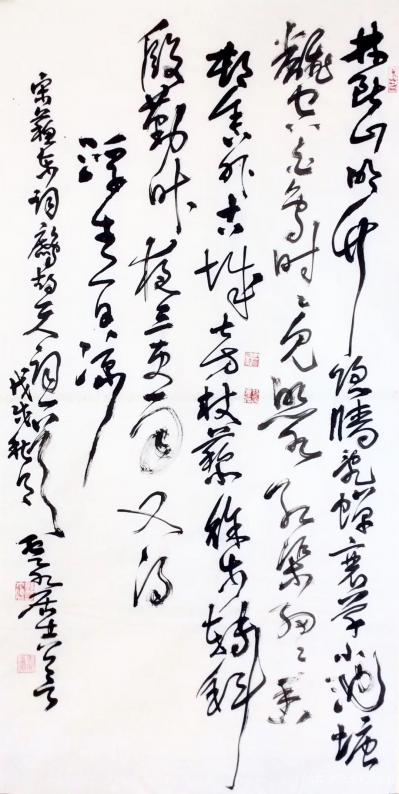 林断山明竹隐墙乱蝉衰草小池塘
翻空白鸟时々见照水红蕖细々香
邨舍外古城旁杖藜徐步转斜
殷勤昨夜三更雨又得
浮生一日凉
宋苏东词鹧鸪天词一首
戊戌秋月
居士